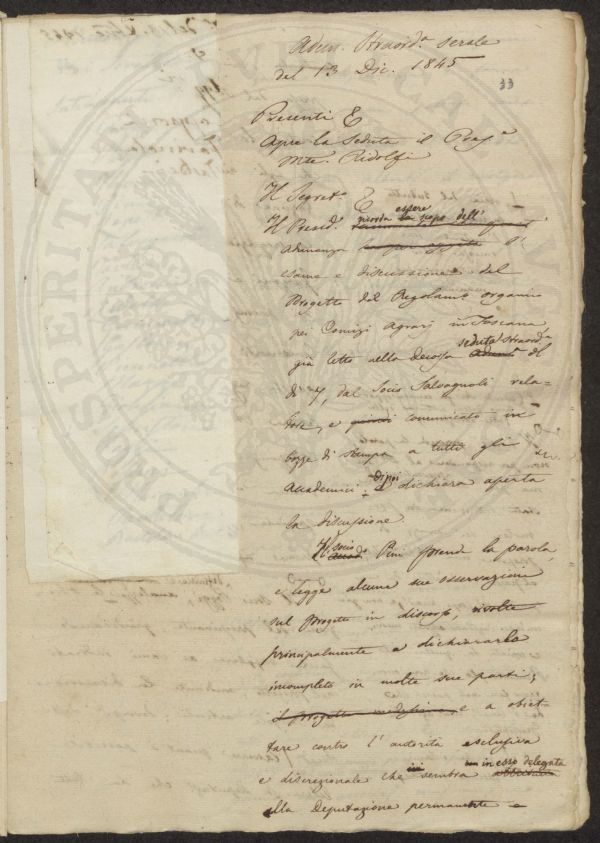 Adun. Straord.ª serale
del 13 Dic. 1845
33
Presenti E
Apre la Seduta il Pres.e
Mse. Ridolfi
Il Segret.o E
Il Presid.e ricorda essere lo scopo dell'
adunanza l'
esame e discussione del
Progetto del Regolamto organico
pei Comizj Agrarj in Toscana,
già letto nella decorsa seduta straord.a del
dì 7, dal Socio Salvagnoli rela-
tore, e quindi comunicato in
bozze di stampa a tutti gli
Accademici; dipoi dichiara aperta
la discussione.
Il socio Pini prende la parola,
e legge alcune sue osservazioni
sul progetto in discorso, rivolte
principalmente a dichiararlo
incompleto in molte sue parti;
il progetto medesimo, e a obiet-
tare contro l'autorità esclusiva
e discrezionale che sembra in esso delegata
alla Deputazione permanente e